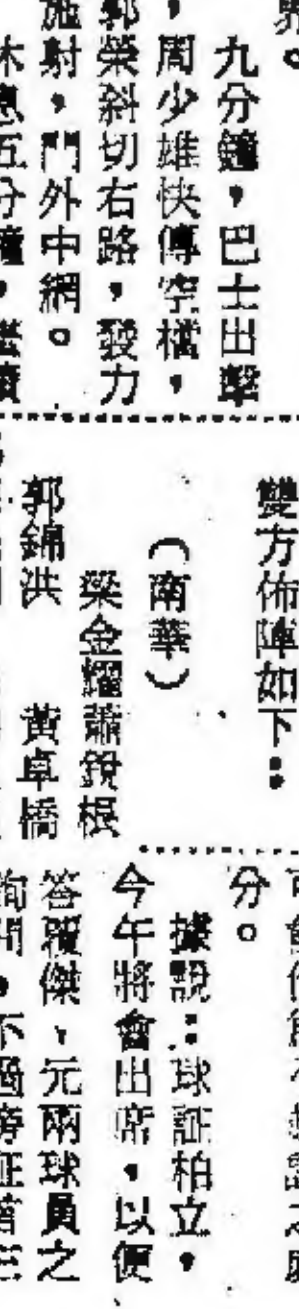 九分鐘，巴士出擊
，周少雄快傳空檔，
郭榮斜切右路，發力
施射，門外中網。
休息五分鐘，
雙方佈陣如下：
（南華）
梁金耀蕭鏡根
郭錦洪 黃卓橋
分。
據說：球証柏立，
今午將會出席，以便
答覆傑、元兩球員之
詢問。不過旁証